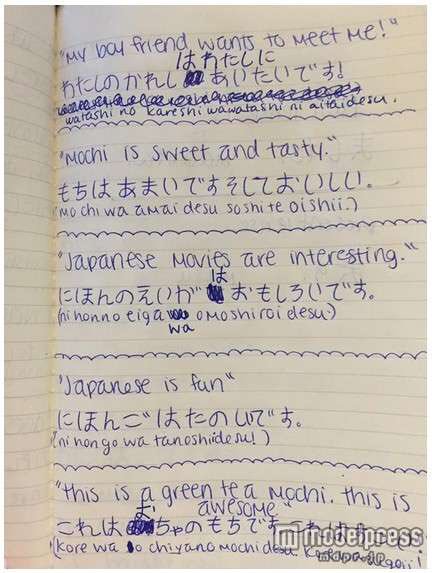 "My boyfriend wants to meet me!"
はわたしに
わたしのかれし あいたいです!
watashi no kareshi wawatashi ni aitaidesu.
"Mochi is sweet and tasty."
もちは あまいです そして おいしい。
(Mo chi wa amai desu soshite oishii.)
"Japanese Movies are interesting."
は
にほんのえいが おもしろいです。
(ni honno eiga omoshiroi desu.)
wa
"Japanese is fun"
にほんご はたのしいです。
(ni hon go wa tanoshidesu!)
"this is a green tea Mochi. this is
お awesome"
これは ちゃのもちです
(kore wa o chiyano mochi desu.
modelpress
mdpr.jp